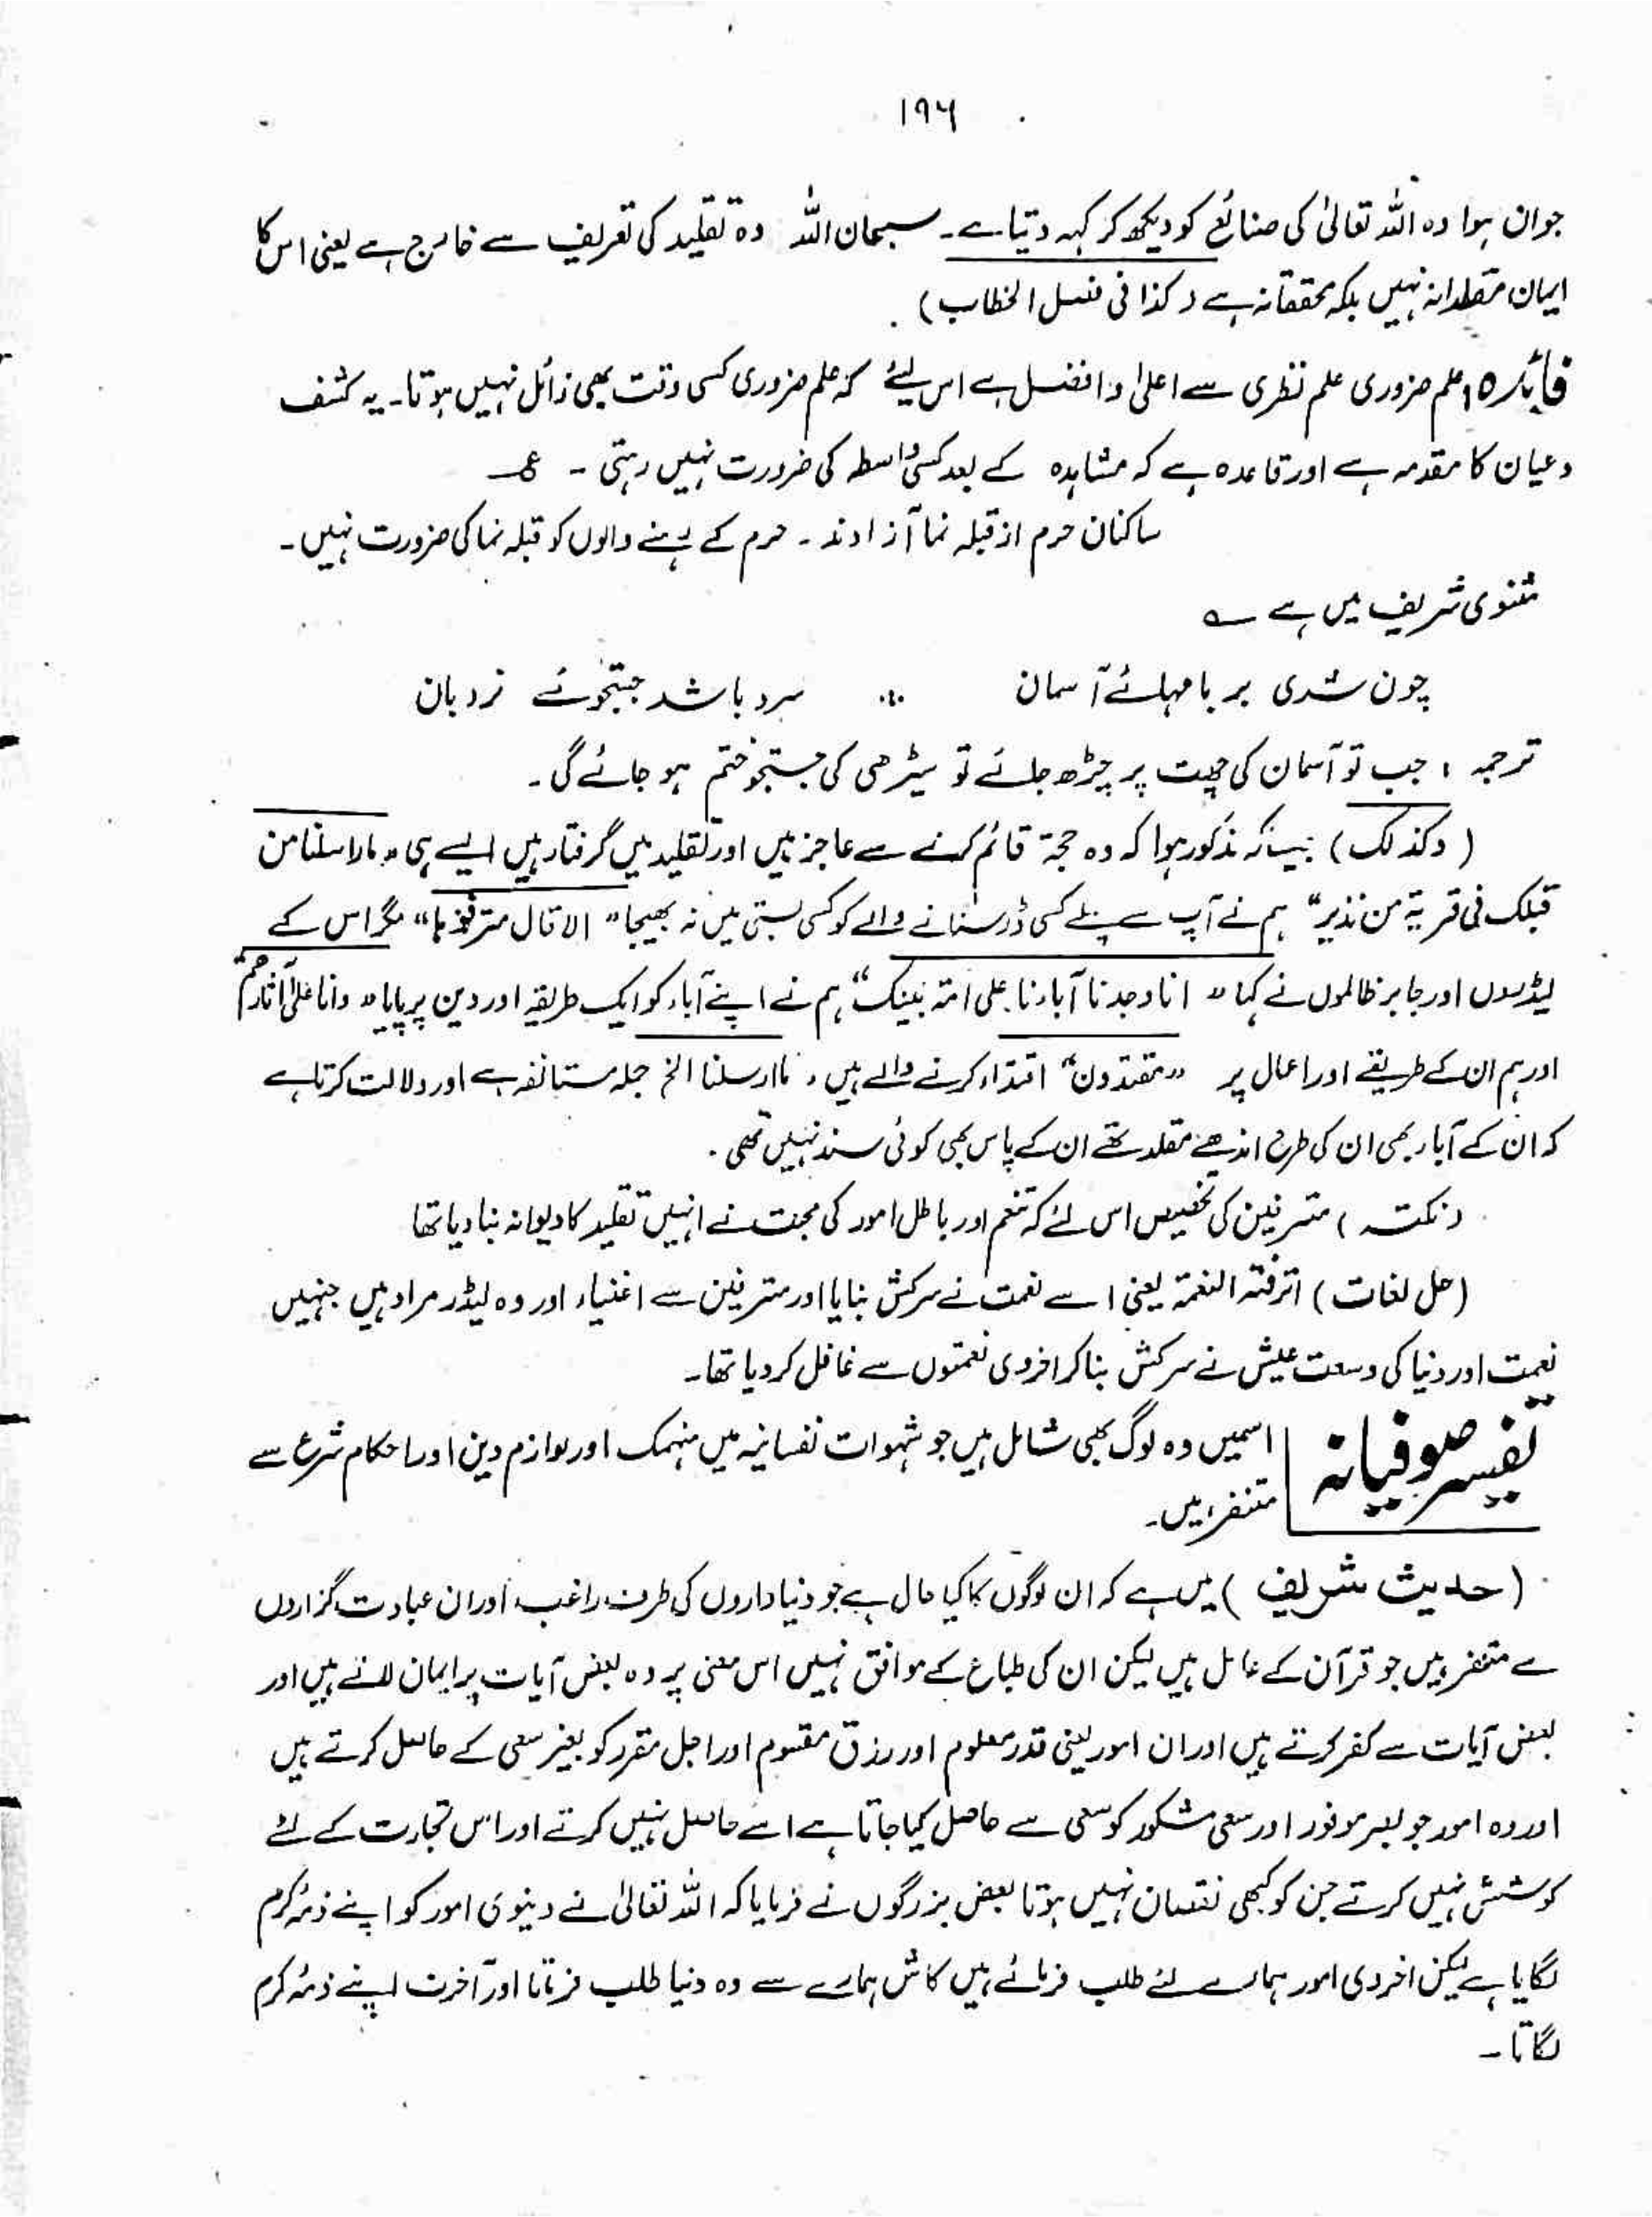 ۱۹۶
جوان ہوا وہ اللہ تعالیٰ کی صنائع کو دیکھ کر کہہ دیتا ہے۔ سبحان اللہ وہ تقلید کی تعریف سے خارج ہے یعنی اس کا
ایمان مقلدانہ نہیں بلکہ محققانہ ہے (کذا فی فصل الخطاب)۔
فائدہ: علم ضروری علم نظری سے اعلیٰ و افضل ہے اس لیے کہ علم ضروری کسی وقت بھی زائل نہیں ہوتا۔ یہ کشف
و عیان کا مقدمہ ہے اور قاعدہ ہے کہ مشاہدہ کے بعد کسی واسطہ کی ضرورت نہیں رہتی ۔ ع
ساکنان حرم از قبلہ نما آزادند ۔ حرم کے رہنے والوں کو قبلہ نما کی ضرورت نہیں۔
مثنوی شریف میں ہے ؎
چون شدی بر بامہائے آسمان ؞ سرد باشد جستجوئے نردبان
ترجمہ: جب تو آسمان کی چھت پر چڑھ جائے تو سیڑھی کی جستجو ختم ہو جائے گی۔
(وکذلک) جیسا کہ مذکور ہوا کہ وہ حجۃ قائم کرنے سے عاجز ہیں اور تقلید میں گرفتار ہیں ایسے ہی "ماارسلنا من
قبلک فی قریۃ من نذیر" ہم نے آپ سے پہلے کسی ڈر سنانے والے کو کسی بستی میں نہ بھیجا "الا قال مترفوہا" مگر اس کے
لیڈروں اور جابر ظالموں نے کہا "انا وجدنا آباءنا علی امۃ بینک" ہم نے اپنے آباء کو ایک طریقہ اور دین پر پایا "وانا علیٰ آثارھم
اور ہم ان کے طریقے اور اعمال پر "مقتدون" اقتداء کرنے والے ہیں، ماارسلنا الخ جملہ مستانفہ ہے اور دلالت کرتا ہے
کہ ان کے آباء بھی ان کی طرح اندھے مقلد تھے ان کے پاس بھی کوئی سند نہیں تھی۔
(نکتہ) مترفین کی تخصیص اس لئے کہ تنعم اور باطل امور کی محبت نے انہیں تقلید کا دیوانہ بنا دیا تھا
(حل لغات) اترفتہ النعمۃ یعنی اسے نعمت نے سرکش بنایا اور مترفین سے اغنیاء اور وہ لیڈر مراد ہیں جنہیں
نعمت اور دنیا کی وسعت عیش نے سرکش بنا کر اخروی نعمتوں سے غافل کر دیا تھا۔
تفسیر صوفیانہ اسمیں وہ لوگ بھی شامل ہیں جو شہوات نفسانیہ میں منہمک اور لوازم دین اور احکام شرع سے
متنفر ہیں۔
(حدیث شریف) میں ہے کہ ان لوگوں کا کیا حال ہے جو دنیا داروں کی طرف راغب اور ان عبادت گزاروں
سے متنفر ہیں جو قرآن کے عامل ہیں لیکن ان کی طباع کے موافق نہیں اس معنی پر وہ بعض آیات پر ایمان لاتے ہیں اور
بعض آیات سے کفر کرتے ہیں اور ان امور یعنی قدر معلوم اور رزق مقسوم اور اجل مقرر کو بغیر سعی کے حاصل کرتے ہیں
اور وہ امور جو موفور اور سعی مشکور کو سعی سے حاصل کیا جاتا ہے اسے حاصل نہیں کرتے اور اس تجارت کے لئے
کوشش نہیں کرتے جن کو کبھی نقصان نہیں ہوتا بعض بزرگوں نے فرمایا کہ اللہ تعالیٰ نے دنیوی امور کو اپنے ذمۂ کرم
لگایا ہے لیکن اخروی امور ہمارے لئے طلب فرمائے ہیں کاش ہمارے سے وہ دنیا طلب فرماتا اور آخرت اپنے ذمۂ کرم
لگاتا۔